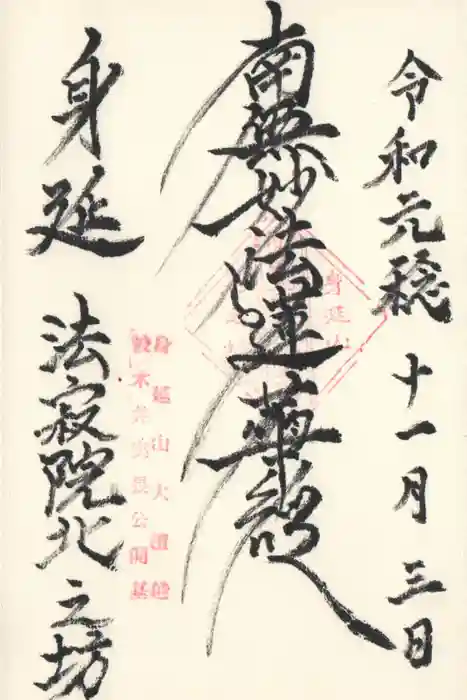 令和元稔十一月三日
南無妙法蓮華経
身延山
身延山大檀越
波木井実長公開基
身延 法寂院北之坊